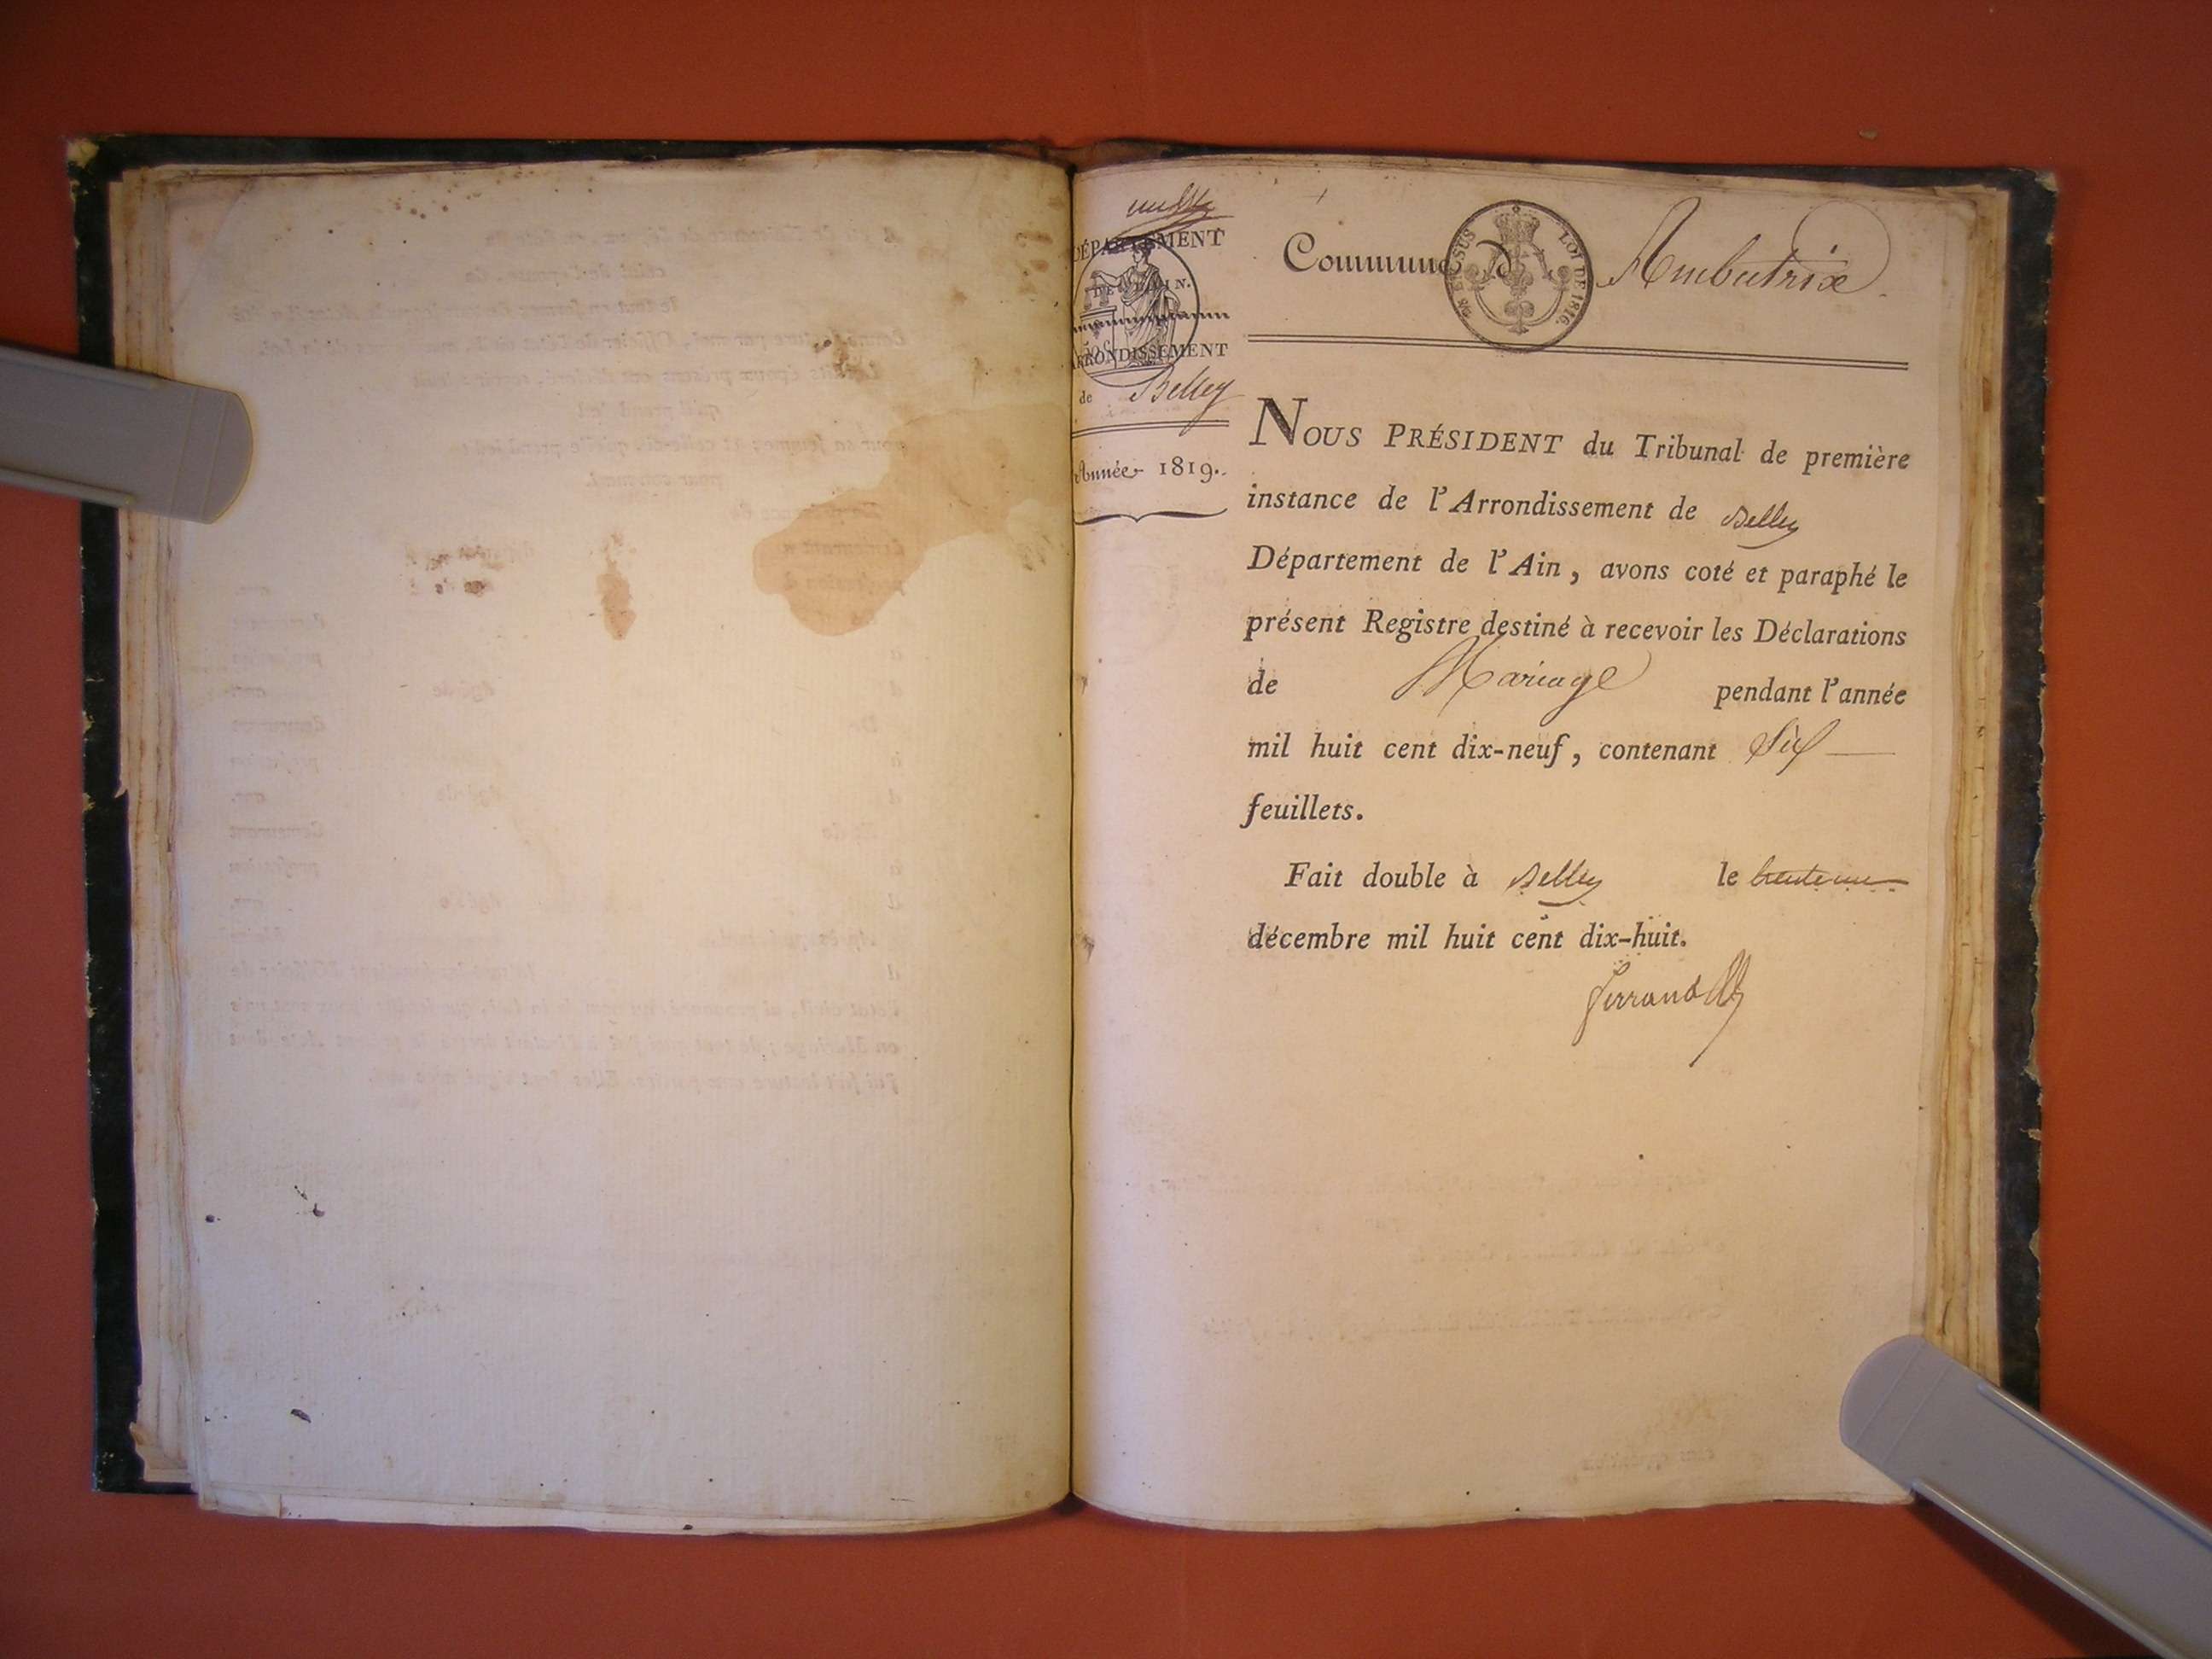 DÉPARTEMENT
DE L'AIN.
ARRONDISSEMENT
de Belley
Année 1819.
Commune d'Ambutrix
EN SUS LOI DE 1816.
50 c
NOUS PRÉSIDENT du Tribunal de première
instance de l'Arrondissement de Belley
Département de l'Ain, avons coté et paraphé le
présent Registre destiné à recevoir les Déclarations
de Mariage pendant l'année
mil huit cent dix-neuf, contenant Six
feuillets.
Fait double à Belley le trente un
décembre mil huit cent dix-huit.
Ferrand